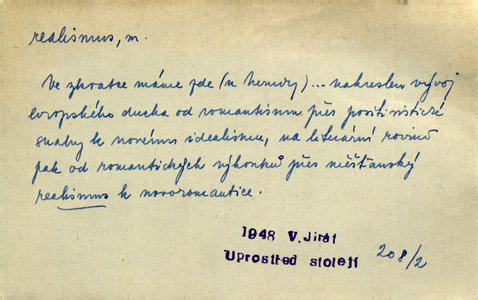 realismus, m.
Ve zkratce máme zde (u Nerudy) ... nakreslen vývoj
evropského ducha od romantismu přes positivistické
snahy k novému idealismu, na literární rovině
pak od romantických výhonků přes měšťanský
realismus k novoromantice.
1948 V. Jirát
Uprostřed století 208/2